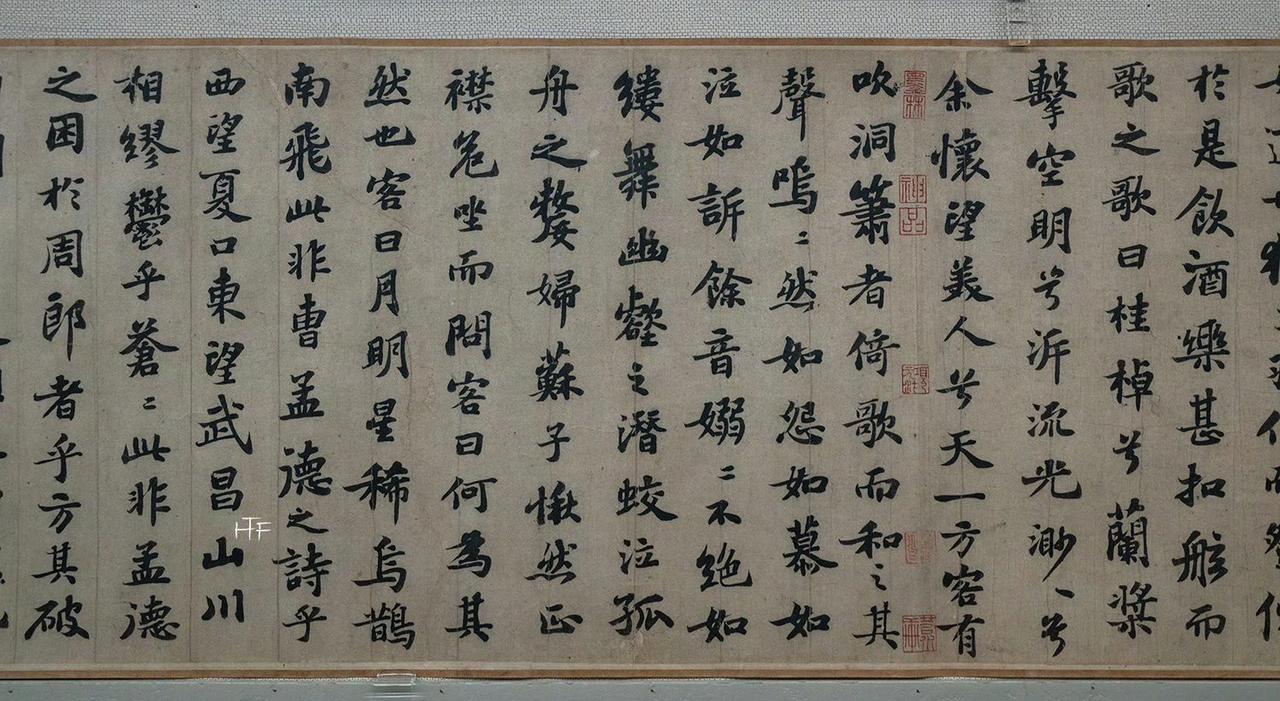 於是飲酒樂甚扣舷而
歌之歌曰桂棹兮蘭槳
擊空明兮泝流光渺〻兮
余懷望美人兮天一方客有
吹洞簫者倚歌而和之其
聲嗚〻然如怨如慕如
泣如訴餘音嫋〻不絕如
縷舞幽壑之潛蛟泣孤
舟之嫠婦蘇子愀然正
襟危坐而問客曰何為其
然也客曰月明星稀烏鵲
南飛此非曹孟德之詩乎
西望夏口東望武昌山川
相繆鬱乎蒼〻此非孟德
之困於周郎者乎方其破
墨林
神品
HTF